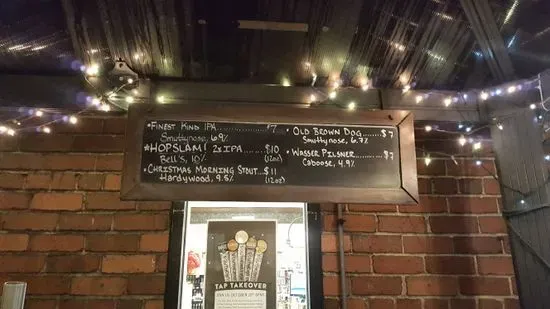 • Finest Kind IPA..............$7
Smuttynose, 6.9%
#HOPSLAM! 2x IPA....$10
Bell's, 10% (12oz)
• Christmas Morning Stout..$11
Hardywood, 9.5% (12oz)
• Old Brown Dog........$7
Smuttynose, 6.7%
• Wasser Pilsner...........$7
Caboose, 4.9%
TAP TAKEOVER